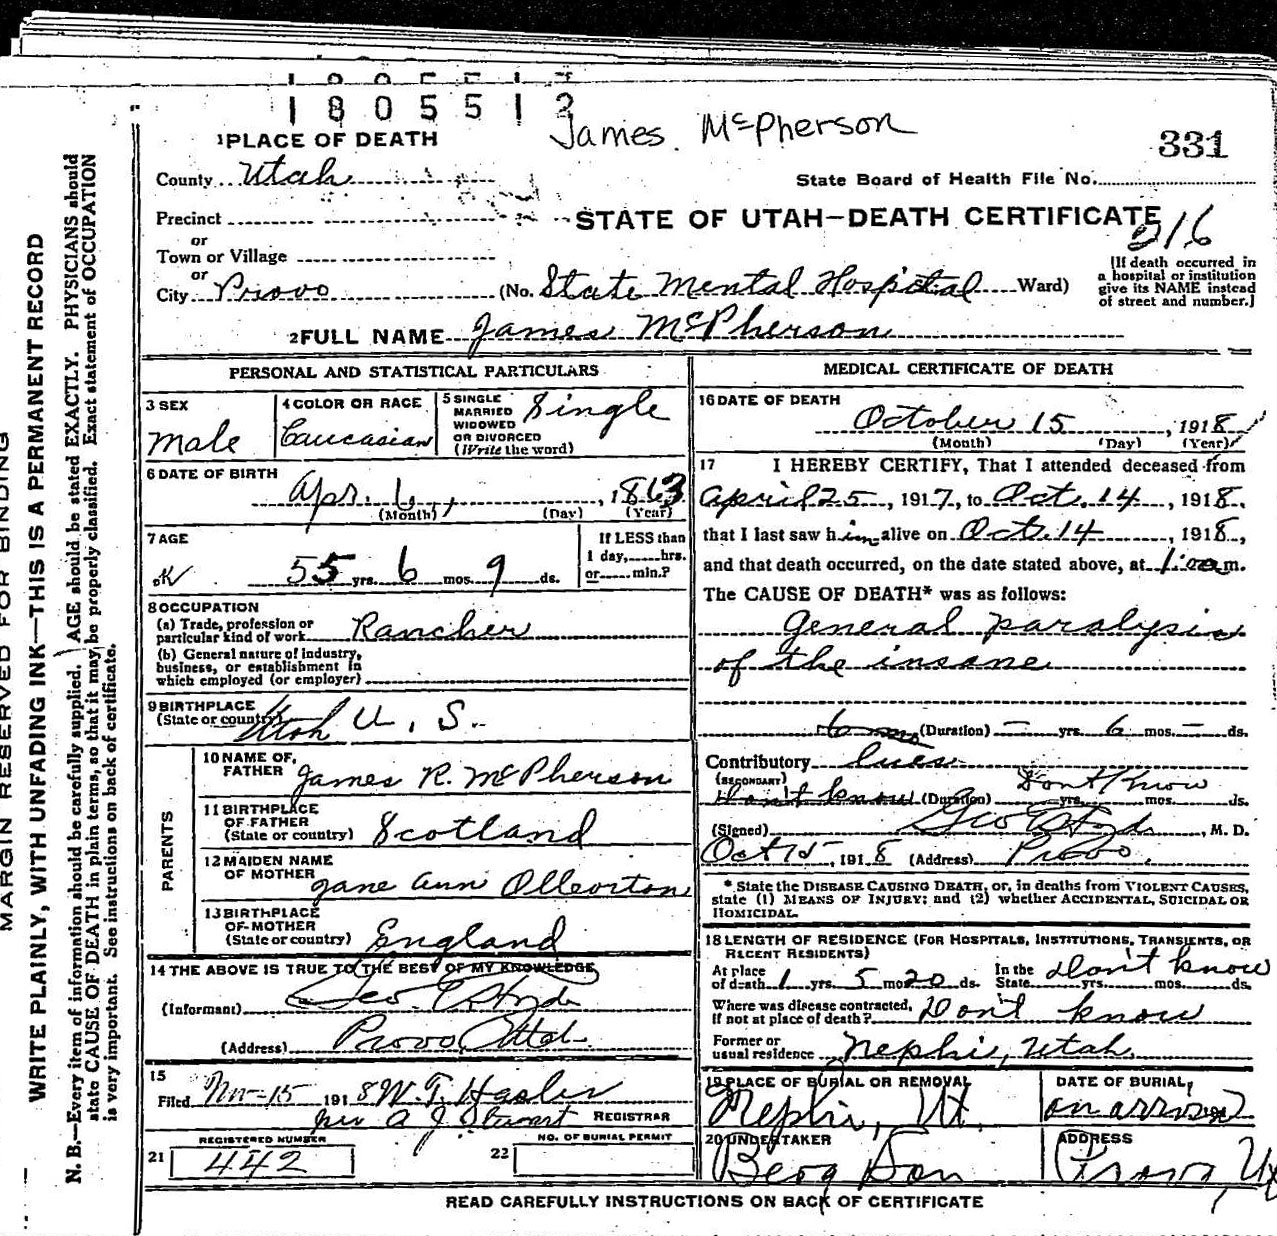 1805512
James McPherson
331
1 PLACE OF DEATH
County Utah
State Board of Health File No.
Precinct
STATE OF UTAH—DEATH CERTIFICATE
or
216
Town or Village
or
City Provo (No. State Mental Hospital Ward)
[If death occurred in
a hospital or institution
give its NAME instead
of street and number.]
2 FULL NAME James McPherson
PERSONAL AND STATISTICAL PARTICULARS
3 SEX
Male
4 COLOR OR RACE
Caucasian
5 SINGLE
MARRIED
WIDOWED
OR DIVORCED
(Write the word)
Single
6 DATE OF BIRTH
Apr. 6, 1863
(Month) (Day) (Year)
7 AGE
If LESS than
1 day, hrs.
or min.?
OK 55 yrs. 6 mos. 9 ds.
8 OCCUPATION
(a) Trade, profession or
particular kind of work Rancher
(b) General nature of industry,
business, or establishment in
which employed (or employer)
9 BIRTHPLACE
(State or country) Utah U. S.
PARENTS
10 NAME OF
FATHER James R. McPherson
11 BIRTHPLACE
OF FATHER
(State or country) Scotland
12 MAIDEN NAME
OF MOTHER Jane Ann Olleorton
13 BIRTHPLACE
OF MOTHER
(State or country) England
14 THE ABOVE IS TRUE TO THE BEST OF MY KNOWLEDGE
(Informant) Geo. E. Hyde
(Address) Provo, Utah
15
Filed Nov-15 1918 W. T. Hasler
per A J Stewart REGISTRAR
REGISTERED NUMBER
21 442
NO. OF BURIAL PERMIT
22
MEDICAL CERTIFICATE OF DEATH
16 DATE OF DEATH
October 15, 1918
(Month) (Day) (Year)
17 I HEREBY CERTIFY, That I attended deceased from
April 25, 1917, to Oct. 14, 1918,
that I last saw him alive on Oct. 14, 1918,
and that death occurred, on the date stated above, at 1:00 a m.
The CAUSE OF DEATH* was as follows:
General paralysis
of the insane
(Duration) — yrs. 6 mos. — ds.
Contributory Lues
(SECONDARY) Dont Know
Don't know (Duration) yrs. mos. ds.
(Signed) Geo E Hyde, M. D.
Oct 15, 1918 (Address) Provo.
* State the DISEASE CAUSING DEATH, or, in deaths from VIOLENT CAUSES,
state (1) MEANS OF INJURY; and (2) whether ACCIDENTAL, SUICIDAL OR
HOMICIDAL.
18 LENGTH OF RESIDENCE (FOR HOSPITALS, INSTITUTIONS, TRANSIENTS, OR
RECENT RESIDENTS)
At place
of death 1 yrs. 5 mos. 20 ds.
In the
State Don't know yrs. mos. ds.
Where was disease contracted,
if not at place of death? Don't know
Former or
usual residence Nephi, Utah
19 PLACE OF BURIAL OR REMOVAL
Nephi, Ut.
DATE OF BURIAL,
on arrival
20 UNDERTAKER
Berg Son
ADDRESS
Provo, Ut
READ CAREFULLY INSTRUCTIONS ON BACK OF CERTIFICATE
MARGIN RESERVED FOR BINDING
WRITE PLAINLY, WITH UNFADING INK—THIS IS A PERMANENT RECORD
N. B.—Every item of information should be carefully supplied. AGE should be stated EXACTLY. PHYSICIANS should
state CAUSE OF DEATH in plain terms, so that it may be properly classified. Exact statement of OCCUPATION
is very important. See instructions on back of certificate.